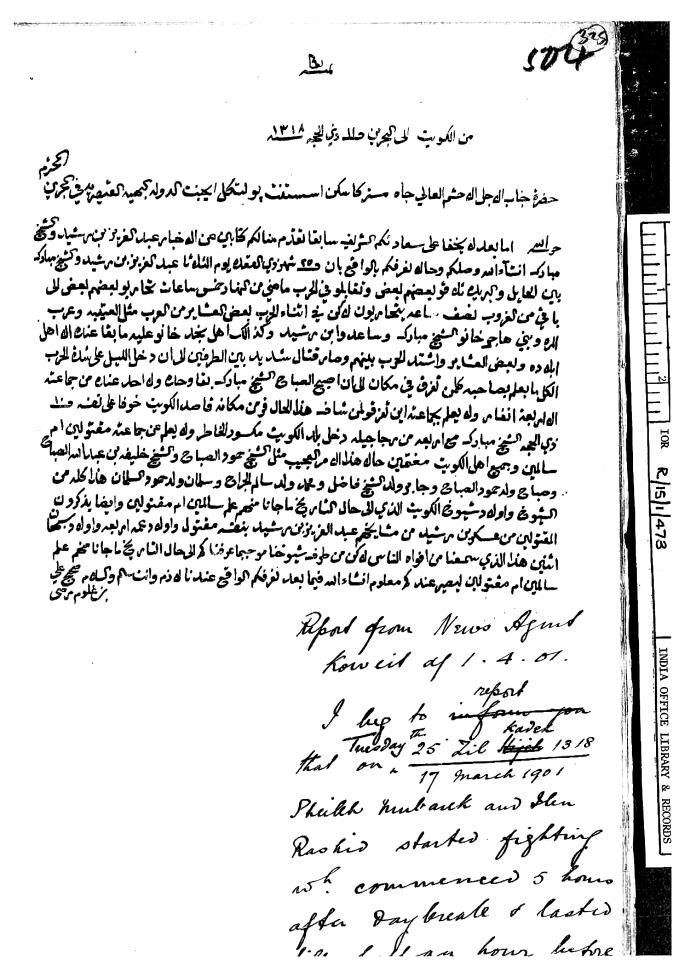 325
504
من الكويت الى البحرين ذي الحجه ١٣١٨
المحترم
حضرة جناب الاجل الاحشم العالي جاه مستر كاسكن اسستنت پولتكل ايجنت الدوله البهيه القيصريه في البحرين
اما بعد لا يخفا على سعادتكم الشريفه سابقا تقدم منا لكم كتاب من اخبار عبد العزيز بن رشيد والشيخ
مبارك انشاءالله وصلكم وحال نعرفكم بالواقع بان ٢٥ شهر ذي القعده يوم الثلاثا عبد العزيز بن رشيد والشيخ مبارك
بين الحايل والبريده بعضهم بعض وتقابلو في الحرب ماضي من النهار خمس ساعات بعضهم بعض الى
باقي من الغروب نصف ساعه لاكن في اثناء الحرب بعض العشاير من العرب مثل وعرب
خانو الشيخ مبارك وساعدو ابن رشيد وكذالك اهل نجد خانو عليه ما بقا عنده الا اهل
بلاده وبعض العشاير واشتد الحرب بينهم وصار قتال شديد بين الطرفين الى ان دخل الليل على شدة الحرب
الكل ما يعلم بصاحبه كلمن تفرق في مكان الى ان اصبح الصباح الشيخ مبارك بقا وحده ولا احد عنده من جماعته
الا اربعة انفار ولا يعلم بجماعته اين تفرقو لمن شاف هذا الحال من مكانه قاصد الكويت خوفا على نفسه
ذي الحجه الشيخ مبارك مع اربعه من رجاجيله دخل بلد الكويت مكسور الخاطر ولا يعلم من جماعته مقتولين ام
سالمين وجميع اهل الكويت من هذا الامر العجيب مثل الشيخ حمود الصباح والشيخ خليفه بن عبدالله الصباح
وصباح ولد حمود الصباح وجابر ولد الشيخ فاضل ومحمد ولد سالم الجراح وسلمان ولد حمود السلمان هذا كله من
الشيوخ واولاد شيوخ الكويت الذي الى حال التاريخ ما جانا منهم علم سالمين ام مقتولين وايضا يذكرون
المقتولين من عسكر بن رشيد من مشايخهم عبد العزيز بن رشيد بنفسه مقتول واولاد عمه اربعه واولاد
اثنين هذا الذي سمعنا من افواه الناس لاكن من طرف شيوخنا موجبما عرفناكم الى حال التاريخ ما جانا منهم علم
سالمين ام مقتولين ليصير عندكم معلوم انشاءالله فيما بعد نعرفكم الواقع عندنا لازم وانت سالم والسلام صح علي
بن غلوم رضى
Report from News Agent
Koweit of 1.4.01.
report
I beg to inform you
Kadeh
that on Tuesday 25th Zil Hijeh 1318
17 March 1901
Sheikh Mubarek and Ibn
Rashid started fighting
wh. commenced 5 hours
after daybreak & lasted
till half an hour before
2
IOR R/15/1/473
INDIA OFFICE LIBRARY & RECORDS